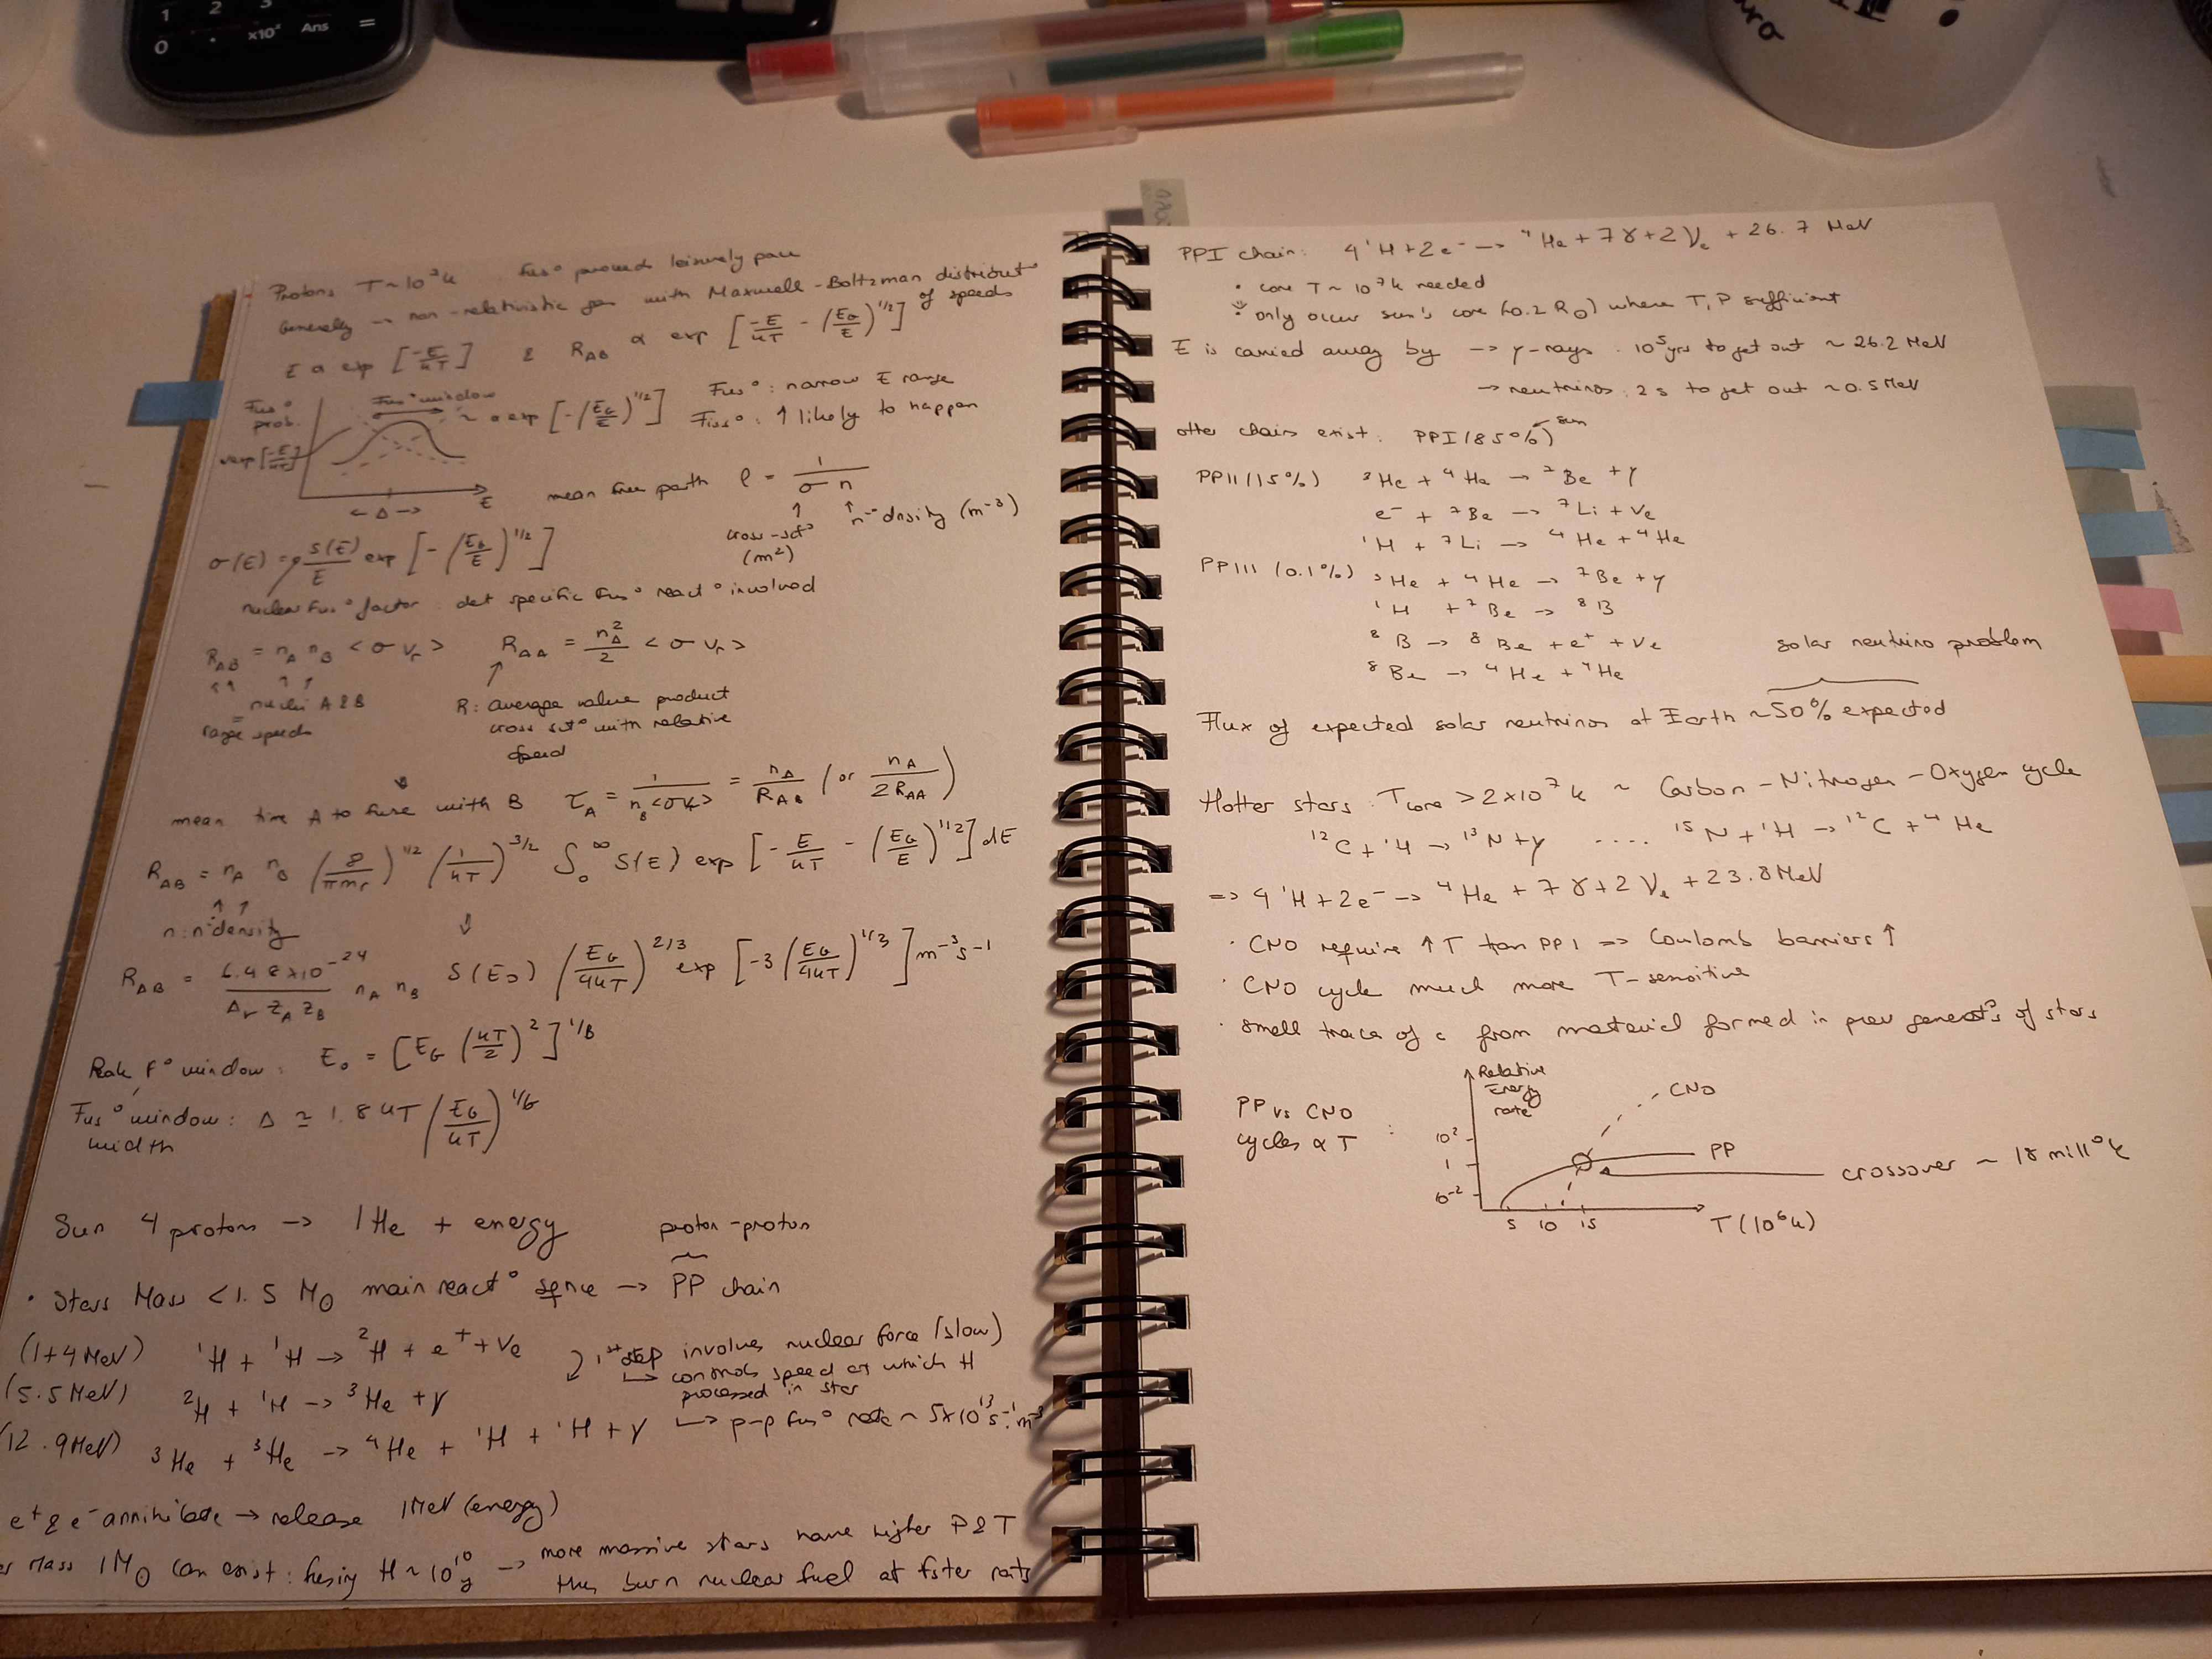 Protons T~10⁷K fus° proceed leisurely pace
Generally → non-relativistic gas with Maxwell-Boltzman distribut° of speeds
E α exp[-E/kT] & R_AB α exp[-E/kT - (E_G/E)^1/2]
Fus° prob.
Fus° window
~ α exp[-(E_G/E)^1/2]
Fus°: narrow E range
Fus°: ↑ likely to happen
← Δ →
E
mean free path ℓ = 1/σn
cross-sct° (m²)
n-density (m⁻³)
σ(E) = S(E)/E exp[-(E_G/E)^1/2]
nuclear fus° factor: det specific fus° react° involved
R_AB = n_A n_B <σ v_r>
R_AA = n_A²/2 <σ v_r>
= nuclei A & B
R: average value product cross sct° with relative speed
mean time A to fuse with B τ_A = 1/n_B<σv_r> = n_A/R_AB (or n_A/2R_AA)
R_AB = n_A n_B (8/πm_r)^1/2 (1/kT)^3/2 ∫₀^∞ S(E) exp[-E/kT - (E_G/E)^1/2] dE
n: n°density
R_AB = 6.48×10⁻²⁴/A_r Z_A Z_B n_A n_B S(E₀) (E_G/4kT)^2/3 exp[-3(E_G/4kT)^1/3] m⁻³s⁻¹
Peak f° window: E₀ = [E_G (kT/2)²]^1/3
Fus° window: Δ = 1.8 kT (E_G/kT)^1/6
width
Sun 4 protons → 1He + energy
proton-proton
• Stars Mass < 1.5 M⊙ main react° → PP chain
(1+4 MeV) ¹H + ¹H → ²H + e⁺ + νe
1st step involves nuclear force (slow)
↳ controls speed at which H processed in star
(5.5 MeV) ²H + ¹H → ³He + γ
↳ p-p fus° rate ~ 5×10¹³ s⁻¹ m⁻³
(12.9 MeV) ³He + ³He → ⁴He + ¹H + ¹H + γ
e⁺ & e⁻ annihilate → release 1MeV (energy)
mass 1M⊙ can exist: fusing H ~ 10¹⁰ y → more massive stars have higher P & T
thus burn nuclear fuel at faster rates
PPI chain: 4 ¹H + 2e⁻ → ⁴He + 7γ + 2νe + 26.7 MeV
• core T ~ 10⁷K needed
∴ only occur sun's core (0.2 R⊙) where T, P sufficient
E is carried away by → γ-rays: 10⁵ yrs to get out ~ 26.2 MeV
→ neutrinos: 2s to get out ~ 0.5 MeV
other chains exist: PPI (85%) sun
PPII (15%) ³He + ⁴He → ⁷Be + γ
e⁻ + ⁷Be → ⁷Li + νe
¹H + ⁷Li → ⁴He + ⁴He
PPIII (0.1%) ³He + ⁴He → ⁷Be + γ
¹H + ⁷Be → ⁸B
⁸B → ⁸Be + e⁺ + νe
⁸Be → ⁴He + ⁴He
solar neutrino problem
Flux of expected solar neutrinos at Earth ~50% expected
Hotter stars: Tcore > 2×10⁷K ~ Carbon-Nitrogen-Oxygen cycle
¹²C + ¹H → ¹³N + γ .... ¹⁵N + ¹H → ¹²C + ⁴He
=> 4 ¹H + 2e⁻ → ⁴He + 7γ + 2νe + 23.8 MeV
• CNO require ↑T than PPI => Coulomb barriers ↑
• CNO cycle much more T-sensitive
• small trace of c from material formed in prev generat°s of stars
PP vs CNO
cycles α T :
Relative Energy rate
10²
1
CNO
PP
5 10 15
T (10⁶K)
crossover ~ 18 mill° K